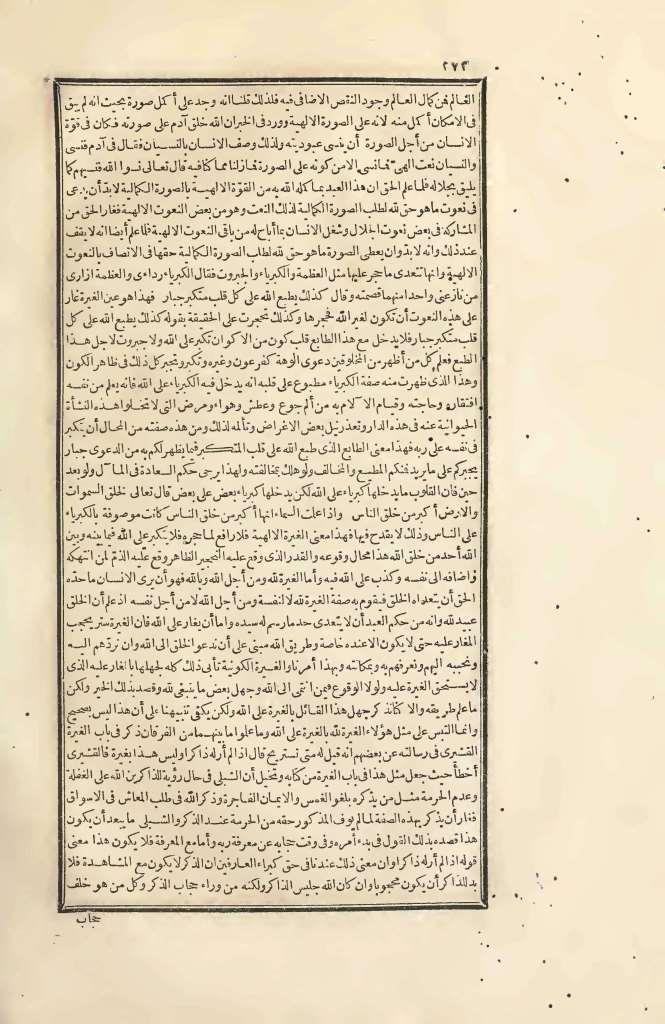 ٢٧٣
العالم فمن كمال العالم وجود النقص الاضافى فيه فلذلك قلنا انه وجد على أكمل صورة بحيث انه لم يبق
فى الامكان أكمل منه لانه على الصورة الالهية وورد فى الخبر ان الله خلق آدم على صورته فكان فى قوّة
الانسان من أجل الصورة أن ينسى عبوديته ولذلك وصف الانسان بالنسيان فقال فى آدم فنسى
والنسيان نعت الهىّ فما نسى الا من كونه على الصورة فما زلنا مما كنا فيه قال تعالى نسوا الله فنسيهم كما
يليق بجلاله فلما علم الحق ان هذا العبد بما كمله الله به من القوّة الالهية بالصورة الكمالية لا بد أن يدعى
فى نعوت ما هو حق لله لطلب الصورة الكمالية لذلك النعت وهو من بعض النعوت الالهية فغار الحق من
المشاركة فى بعض نعوت الجلال وشغل الانسان بما أباح له من باقى النعوت الالهية فلما علم أيضا انه لا يقف
عند ذلك وانه لا بد وان يعطى الصورة ما هو حق لله لطلب الصورة الكمالية حقها فى الاتصاف بالنعوت
الالهية وانها تتعدى ما حجر عليها مثل العظمة والكبرياء والجبروت فقال الكبرياء ردائى والعظمة ازارى
من نازعنى واحدا منهما قصمته وقال كذلك يطبع الله على كل قلب متكبر جبار فهذا هو عين الغيرة غار
على هذه النعوت أن تكون لغير الله فحجرها وكذلك تحجرت على الحقيقة بقوله كذلك يطبع الله على كل
قلب متكبر جبار فلا يدخل مع هذا الطابع قلب كون من الاكوان تكبر على الله ولا جبروت لاجل هذا
الطبع فعلم كل من أظهر من المخلوقين دعوى الوهة كفرعون وغيره وتكبر وتجبر كل ذلك فى ظاهر الكون
وهذا الذى ظهرت منه صفة الكبرياء مطبوع على قلبه انه يدخل فيه الكبرياء على الله فانه يعلم من نفسه
افتقاره وحاجته وقيام الآلام به من ألم جوع وعطش وهواء ومرض التى لا تخلوا هذه النشأة
الحيوانية عنه فى هذه الدار وتعذر نيل بعض الاغراض وتألمه لذلك ومن هذه صفته من المحال أن يتكبر
فى نفسه على ربه فهذا معنى الطابع الذى طبع الله على قلب المتكبر فيما يظهر لكم به من الدعوى جبار
يجبركم على ما يريد فمنكم المطيع والمخالف ولو هلك بمخالفته ولهذا يرجى حكم السعادة فى المآل ولو بعد
حين فان القلوب ما يدخلها كبرياء على الله لكن يدخلها كبرياء بعض على بعض قال تعالى لخلق السموات
والارض أكبر من خلق الناس واذا علت السماء انها أكبر من خلق الناس كانت موصوفة بالكبرياء
على الناس وذلك لا يقدح فيها فهذا معنى الغيرة الالهية فلا رافع لما حجره فلا يتكبر على الله فيما بينه وبين
الله أحد من خلق الله هذا محال وقوعه والقدر الذى وقع عليه التحجير الظاهر وقع عليه الذمّ لمن انتهكه
وأضافه الى نفسه وكذب على الله فيه وأما الغيرة لله ومن أجل الله وبالله فهو أن يرى الانسان ما حدّه
الحق أن يتعداه الخلق فيقوم به صفة الغيرة لله لا لنفسه ومن أجل الله لا من أجل نفسه اذ علم أن الخلق
عبيد لله وانه من حكم العبد أن لا يتعدى حد ما رسم له سيده واما أن يغار على الله فان الغيرة ستر يحجب
المغار عليه حتى لا يكون الا عنده خاصة وطريق الله مبنى على أن ندعو الخلق الى الله وان نردّهم اليه
ونحببه اليهم ونعرفهم به وبمكانته وبهذا أمرنا والغيرة الكونية تأبى ذلك كله لجهلها بالمغار عليه الذى
لا يستحق الغيرة عليه ولولا الوقوع فيمن انتمى الى الله وجهل بعض ما ينبغى لله وقصد بذلك الخير ولكن
ما علم طريقه والا كنا نذكر جهل هذا القائل بالغيرة على الله ولكن يكفى تنبيهنا على أن هذا ليس بصحيح
وانما التبس على مثل هؤلاء الغيرة لله بالغيرة على الله وما علموا ما بينهما من الفرقان ذكر فى باب الغيرة
القشيرى فى رسالته عن بعضهم انه قيل له متى تستريح قال اذا لم أر له ذاكرا وليس هذا بغيرة فالقشيرى
أخطأ حيث جعل مثل هذا فى باب الغيرة من كتابه وتخيل أن الشبلى فى حال رؤية للذاكرين الله على الغفلة
وعدم الحرمة مثل من يذكره بلغو الغموس والايمان الفاجرة وذكر الله فى طلب المعاش فى الاسواق
فغار أن يذكر بهذه الصفة لما لم يوف المذكور حقه من الحرمة عند الذكر والشبلى ما يبعد أن يكون
هذا قصده بذلك القول فى بدء أمره وفى وقت حجابه عن معرفة ربه وأما مع المعرفة فلا يكون هذا معنى
قوله اذا لم أر له ذاكرا وان معنى ذلك عندنا فى حق كبراء العارفين ان الذكر لا يكون مع المشاهدة فلا
بد للذاكر أن يكون محجوبا وان كان الله جليس الذاكر ولكنه من وراء حجاب الذكر وكل من هو خلف
حجاب